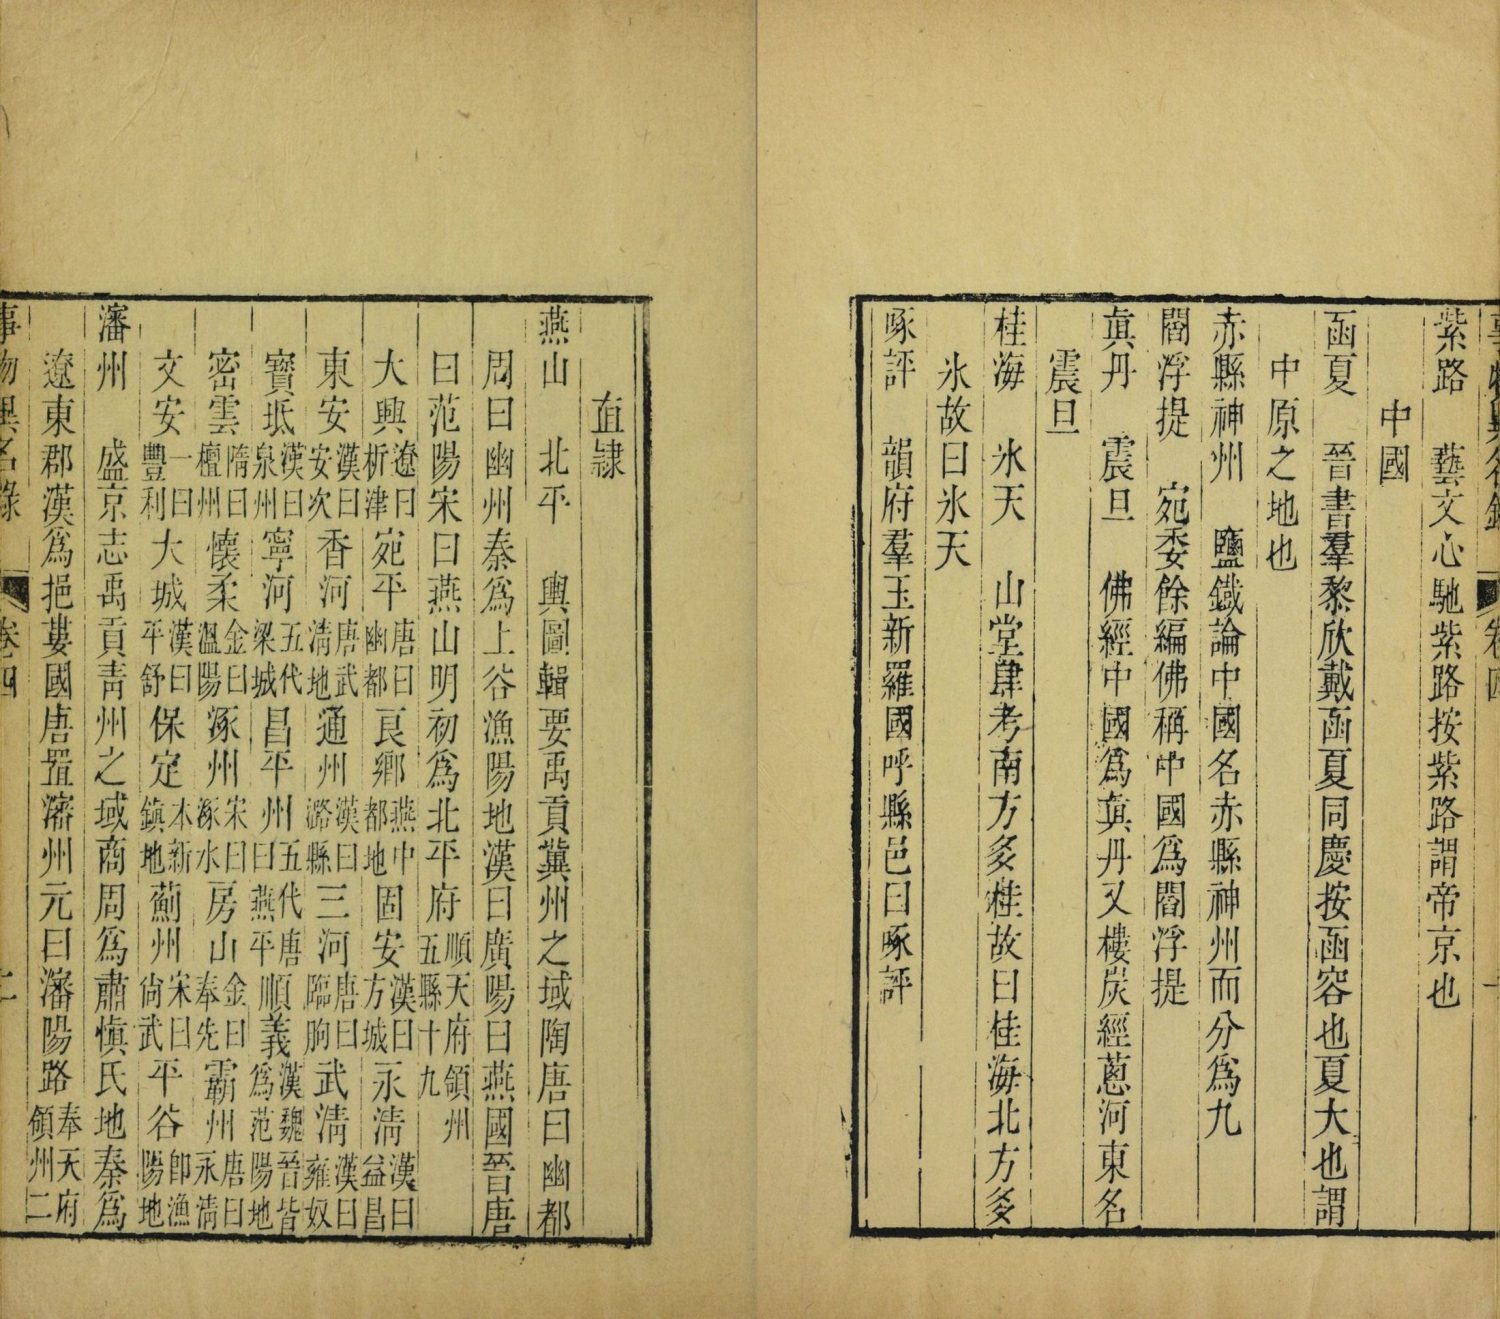 事物異名錄　卷四　一
紫路　藝文心馳紫路按紫路謂帝京也
中國
函夏　晉書羣黎欣戴函夏同慶按函容也夏大也謂
中原之地也
赤縣神州　鹽鐵論中國名赤縣神州而分爲九
閻浮提　宛委餘編佛稱中國爲閻浮提
眞丹　震旦　佛經中國爲眞丹又樓炭經蔥河東名
震旦
桂海　氷天　山堂肆考南方多桂故曰桂海北方多
氷故曰氷天
啄評　韻府羣玉新羅國呼縣邑曰啄評
直隷
燕山　北平　輿圖輯要禹貢冀州之域陶唐曰幽都
周曰幽州秦爲上谷漁陽地漢曰廣陽曰燕國晉唐
曰范陽宋曰燕山明初爲北平府順天府領州五縣十九
大興遼曰析津宛平唐曰幽都良鄉燕中都地固安漢曰方城永淸漢曰益昌
東安漢曰安次香河唐武淸地通州漢曰潞縣三河唐曰臨朐武淸漢曰雍奴
寶坻漢曰泉州寧河五代梁城昌平州五代唐曰燕平順義漢魏晉皆爲范陽地
密雲隋曰檀州懷柔金曰溫陽涿州宋曰涿水房山金曰奉先霸州唐曰永淸
文安一曰豐利大城漢曰平舒保定本新鎮地薊州宋曰尙武平谷卽漁陽地
瀋州　盛京志禹貢靑州之域商周爲肅愼氏地秦爲
遼東郡漢爲挹婁國唐置瀋州元曰瀋陽路奉天府領州二
事物異名錄　卷四　二